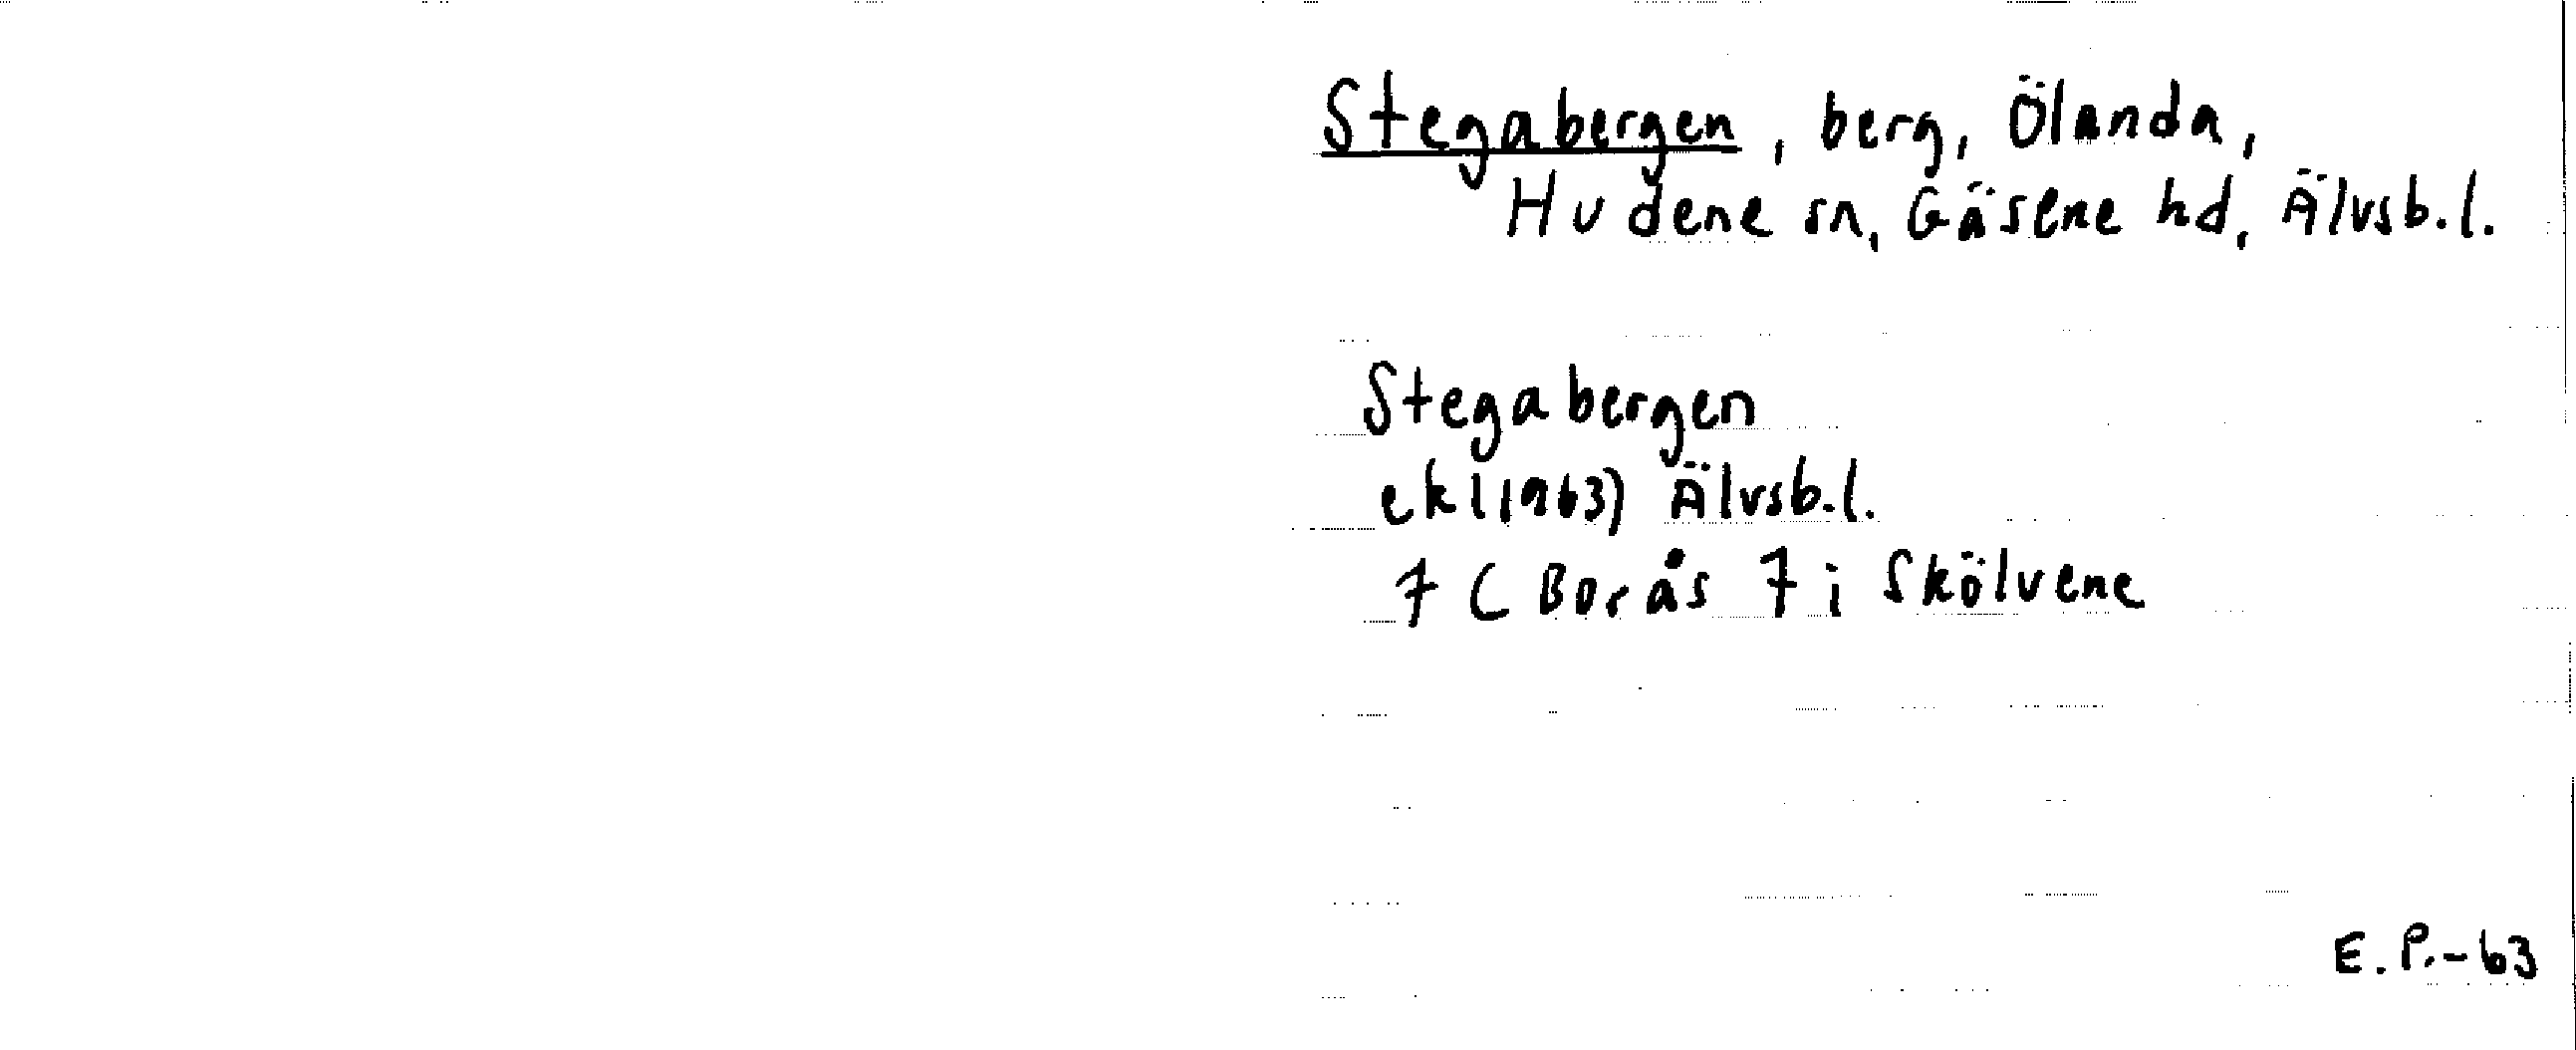 Stegabergen, berg, Ölanda,
Hudene sn, Gäsene hd, Älvsb.l.
Stegabergen
ek(1963) Älvsb.l.
7 C Borås 7 i Skölvene
E.P.-63